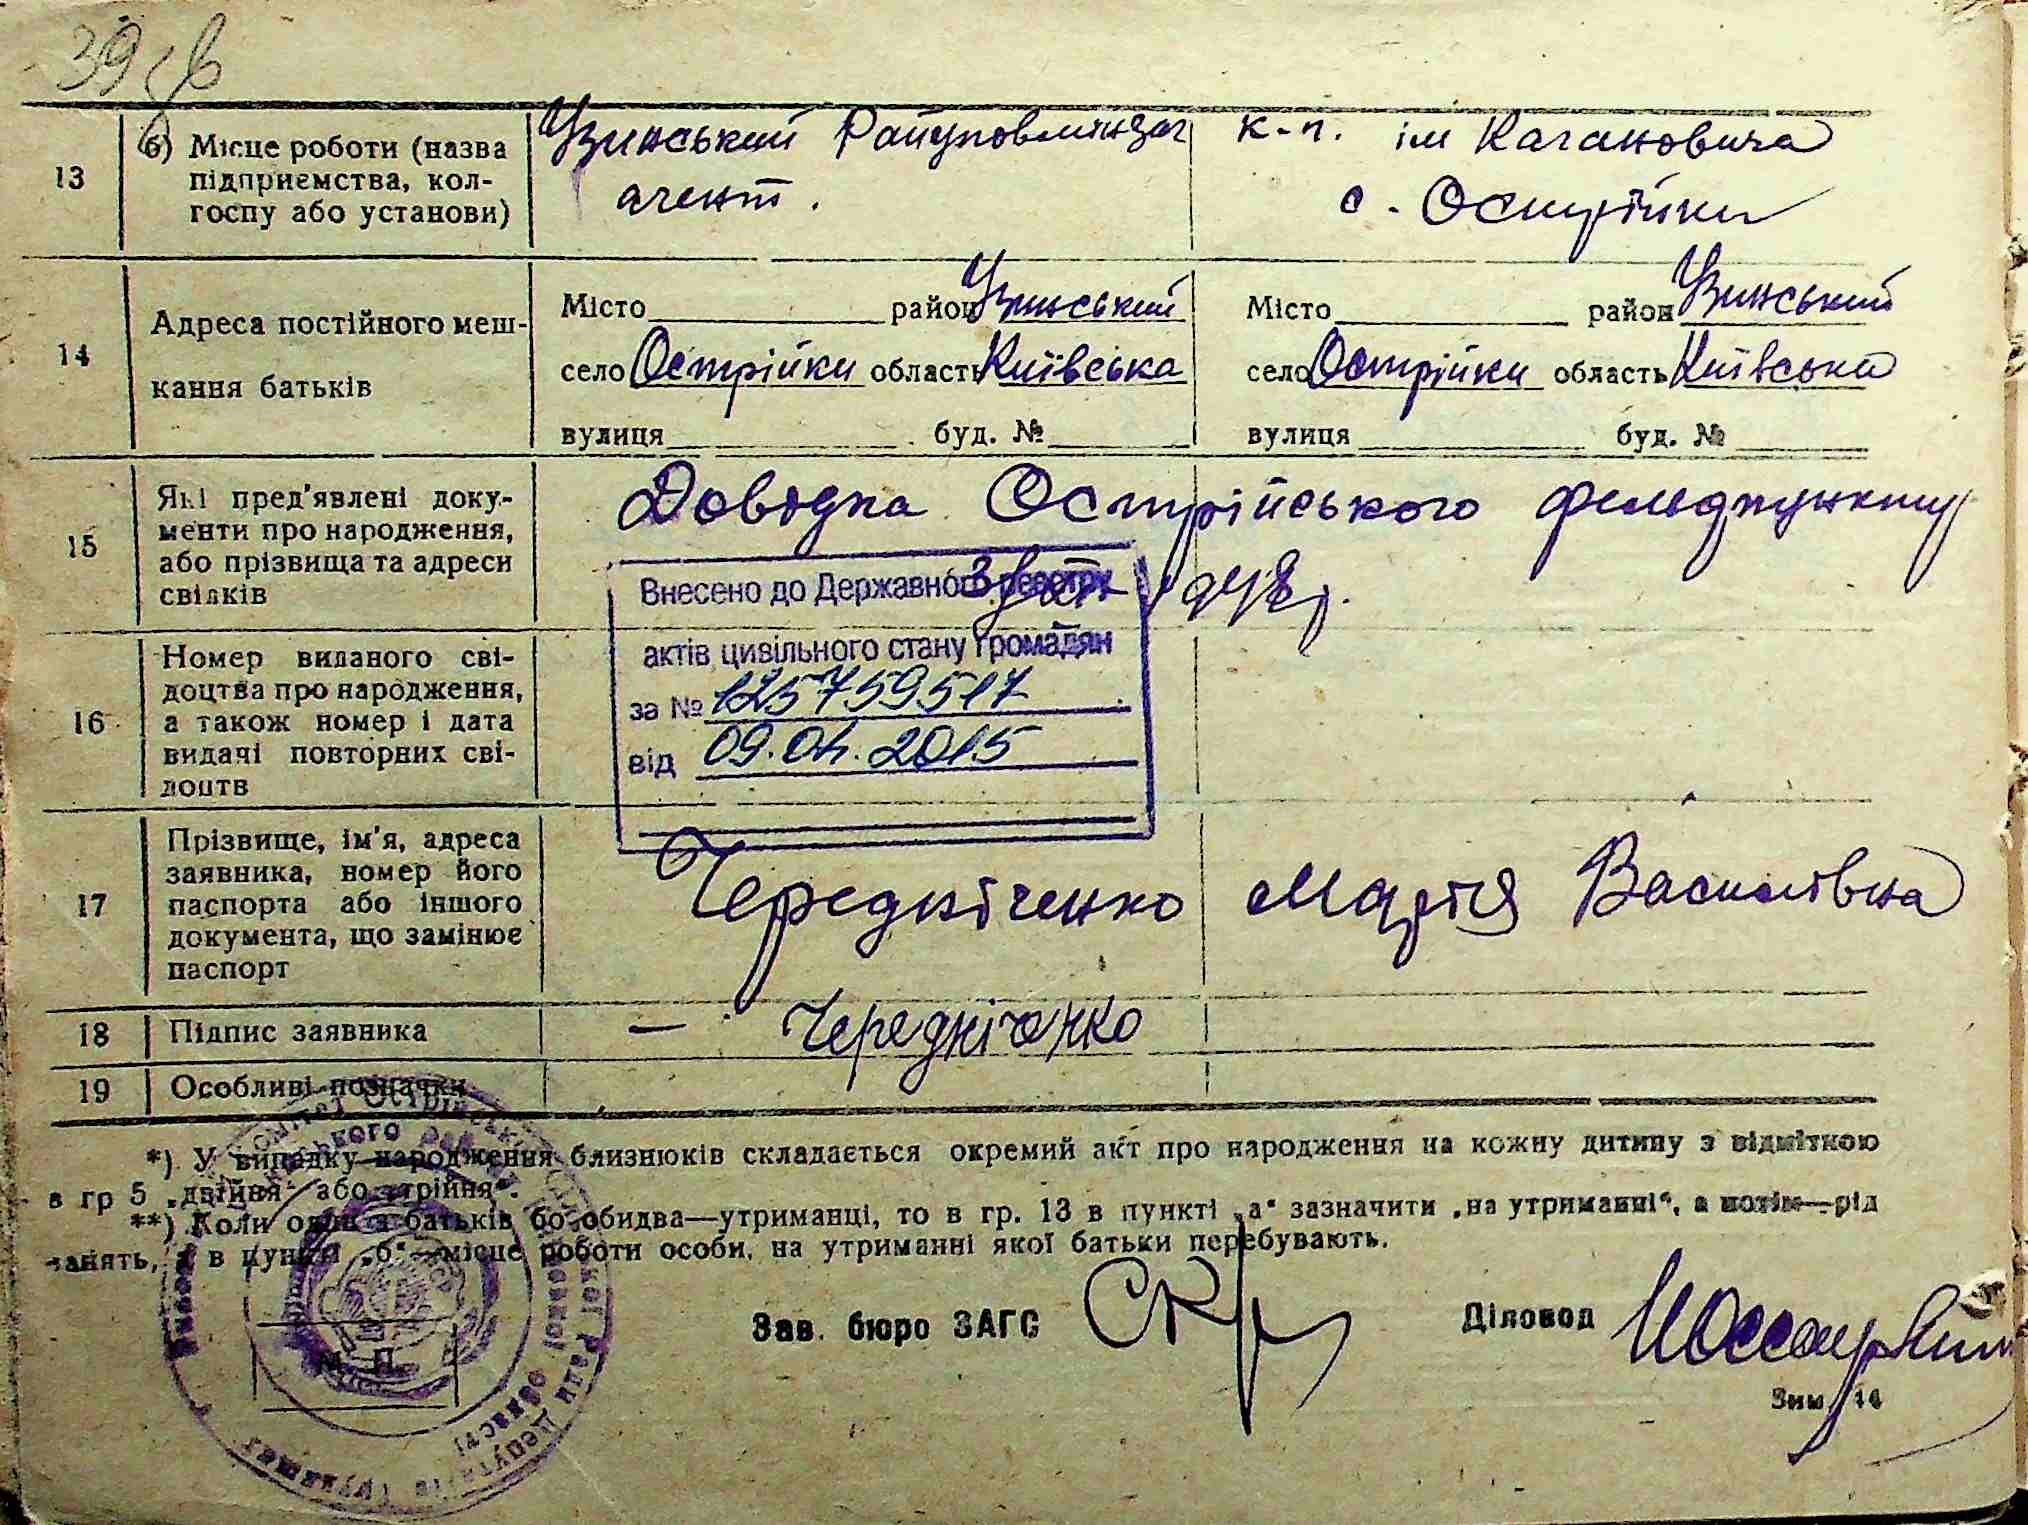 39 зв
13
б) Місце роботи (назва
підприємства, кол-
госпу або установи)
Узинський Райуповмінзаг
агент.
к-п. ім Кагановича
с. Острійки
14
Адреса постійного меш-
кання батьків
Місто район Узинський
село Острійки область Київська
вулиця буд. №
Місто район Узинський
село Острійки область Київська
вулиця буд. №
15
Які пред'явлені доку-
менти про народження,
або прізвища та адреси
свідків
Довідка Острійського фельдпункту
Внесено до Державного реєстру
актів цивільного стану громадян
за № 125759517
від 09.04.2015
16
Номер виданого сві-
доцтва про народження,
а також номер і дата
видачі повторних сві-
доцтв
17
Прізвище, ім'я, адреса
заявника, номер його
паспорта або іншого
документа, що замінює
паспорт
Чередніченко Марія Василівна
18
Підпис заявника
— Чередніченко
19
Особливі позначки
*) У випадку народження близнюків складається окремий акт про народження на кожну дитину з відміткою
в гр 5 „двійня" або „трійня".
**) Коли один з батьків бо обидва—утриманці, то в гр. 13 в пункті „а" зазначити „на утриманні", а потім—рід
занять, а в пункті „б"—місце роботи особи, на утриманні якої батьки перебувають.
М. П.
Зав. бюро ЗАГС
Діловод